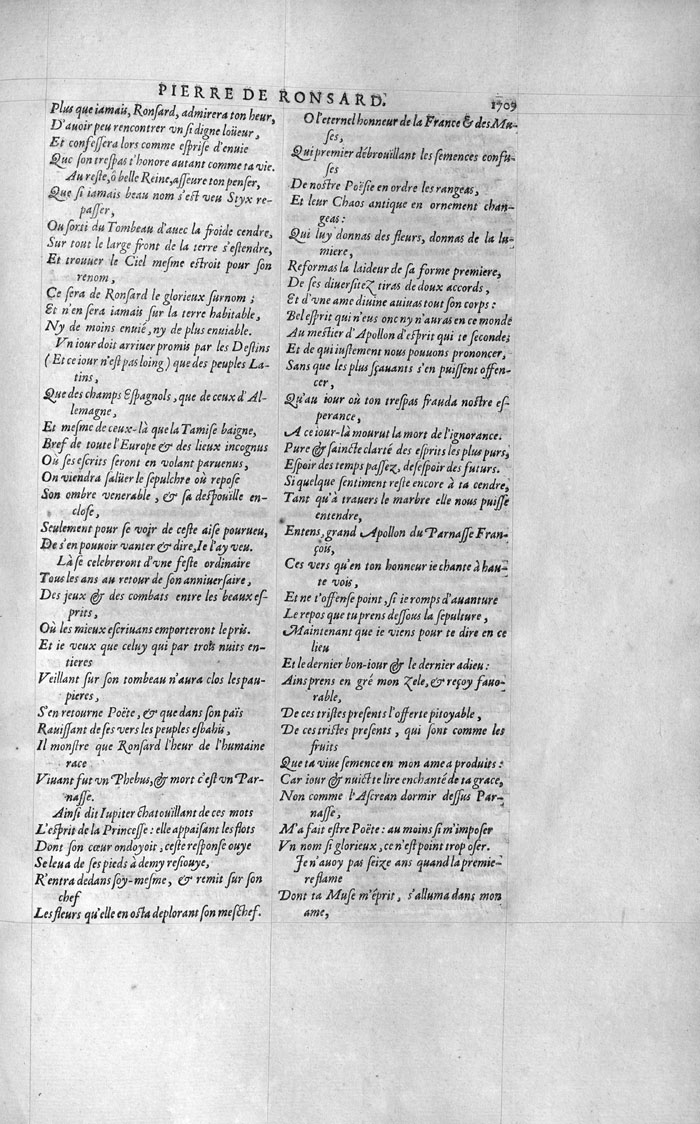 PIERRE DE RONSARD.
1709
Plus que iamais, Ronſard, admirera ton heur,
D'auoir peu rencontrer vn ſi digne loüeur,
Et confeſſera lors comme eſpriſe d'enuie
Que ſon treſpas t'honore autant comme ta vie.
Au reſte, ô belle Reine, aſſeure ton penſer,
Que ſi iamais beau nom s'eſt veu Styx re-
paſſer,
Ou ſorti du Tombeau d'auec la froide cendre,
Sur tout le large front de la terre s'eſtendre,
Et trouuer le Ciel meſme eſtroit pour ſon
renom,
Ce ſera de Ronſard le glorieux ſurnom ;
Et n'en ſera iamais ſur la terre habitable,
Ny de moins enuié, ny de plus enuiable.
Vn iour doit arriuer promis par les Deſtins
(Et ce iour n'eſt pas loing) que des peuples La-
tins,
Que des champs Eſpagnols, que de ceux d'Al-
lemagne,
Et meſme de ceux-là que la Tamiſe baigne,
Bref de toute l'Europe & des lieux incognus
Où ſes eſcrits ſeront en volant paruenus,
On viendra ſalüer le ſepulchre où repoſe
Son ombre venerable, & ſa deſpouille en-
cloſe,
Seulement pour ſe voir de ceſte aiſe pourueu,
De s'en pouuoir vanter & dire, Ie l'ay veu.
Là ſe celebreront d'vne feſte ordinaire
Tous les ans au retour de ſon anniuerſaire,
Des jeux & des combats entre les beaux eſ-
prits,
Où les mieux eſcriuans emporteront le pris.
Et ie veux que celuy qui par trois nuits en-
tieres
Veillant ſur ſon tombeau n'aura clos les pau-
pieres,
S'en retourne Poëte, & que dans ſon païs
Rauiſſant de ſes vers les peuples eſbahis,
Il monſtre que Ronſard l'heur de l'humaine
race
Viuant fut vn Phebus, & mort c'eſt vn Par-
naſſe.
Ainſi dit Iupiter chatouillant de ces mots
L'eſprit de la Princeſſe : elle appaiſant les flots
Dont ſon cœur ondoyoit, ceſte reſponſe ouye
Se leua de ſes pieds à demy reſiouye,
R'entra dedans ſoy-meſme, & remit ſur ſon
chef
Les fleurs qu'elle en oſta deplorant ſon meſchef.
O l'eternel honneur de la France & des Mu-
ſes,
Qui premier débrouillant les ſemences confu-
ſes
De noſtre Poëſie en ordre les rangeas,
Et leur Chaos antique en ornement chan-
geas :
Qui luy donnas des fleurs, donnas de la lu-
miere,
Reformas la laideur de ſa forme premiere,
De ſes diuerſitez tiras de doux accords,
Et d'vne ame diuine auiuas tout ſon corps :
Bel eſprit qui n'eus onc ny n'auras en ce monde
Au meſtier d'Apollon d'eſprit qui te ſeconde;
Et de qui iuſtement nous pouuons prononcer,
Sans que les plus ſçauants s'en puiſſent offen-
cer,
Qu'au iour où ton treſpas frauda noſtre eſ-
perance,
A ce iour-là mourut la mort de l'ignorance.
Pure & ſaincte clarté des eſprits les plus purs,
Eſpoir des temps paſſez, deſeſpoir des futurs.
Si quelque ſentiment reſte encore à ta cendre,
Tant qu'à trauers le marbre elle nous puiſſe
entendre,
Entens, grand Apollon du Parnaſſe Fran-
çois,
Ces vers qu'en ton honneur ie chante à hau-
te vois,
Et ne t'offenſe point, ſi ie romps d'auanture
Le repos que tu prens deſſous la ſepulture,
Maintenant que ie viens pour te dire en ce
lieu
Et le dernier bon-iour & le dernier adieu :
Ains prens en gré mon zele, & reçoy fauo-
rable,
De ces triſtes preſents l'offerte pitoyable,
De ces triſtes preſents, qui ſont comme les
fruits
Que ta viue ſemence en mon ame a produits :
Car iour & nuict te lire enchanté de ta grace,
Non comme l'Aſcrean dormir deſſus Par-
naſſe,
M'a fait eſtre Poëte : au moins ſi m'impoſer
Vn nom ſi glorieux, ce n'eſt point trop oſer.
Je n'auoy pas ſeize ans quand la premie-
re flame
Dont ta Muſe m'éprit, s'alluma dans mon
ame,